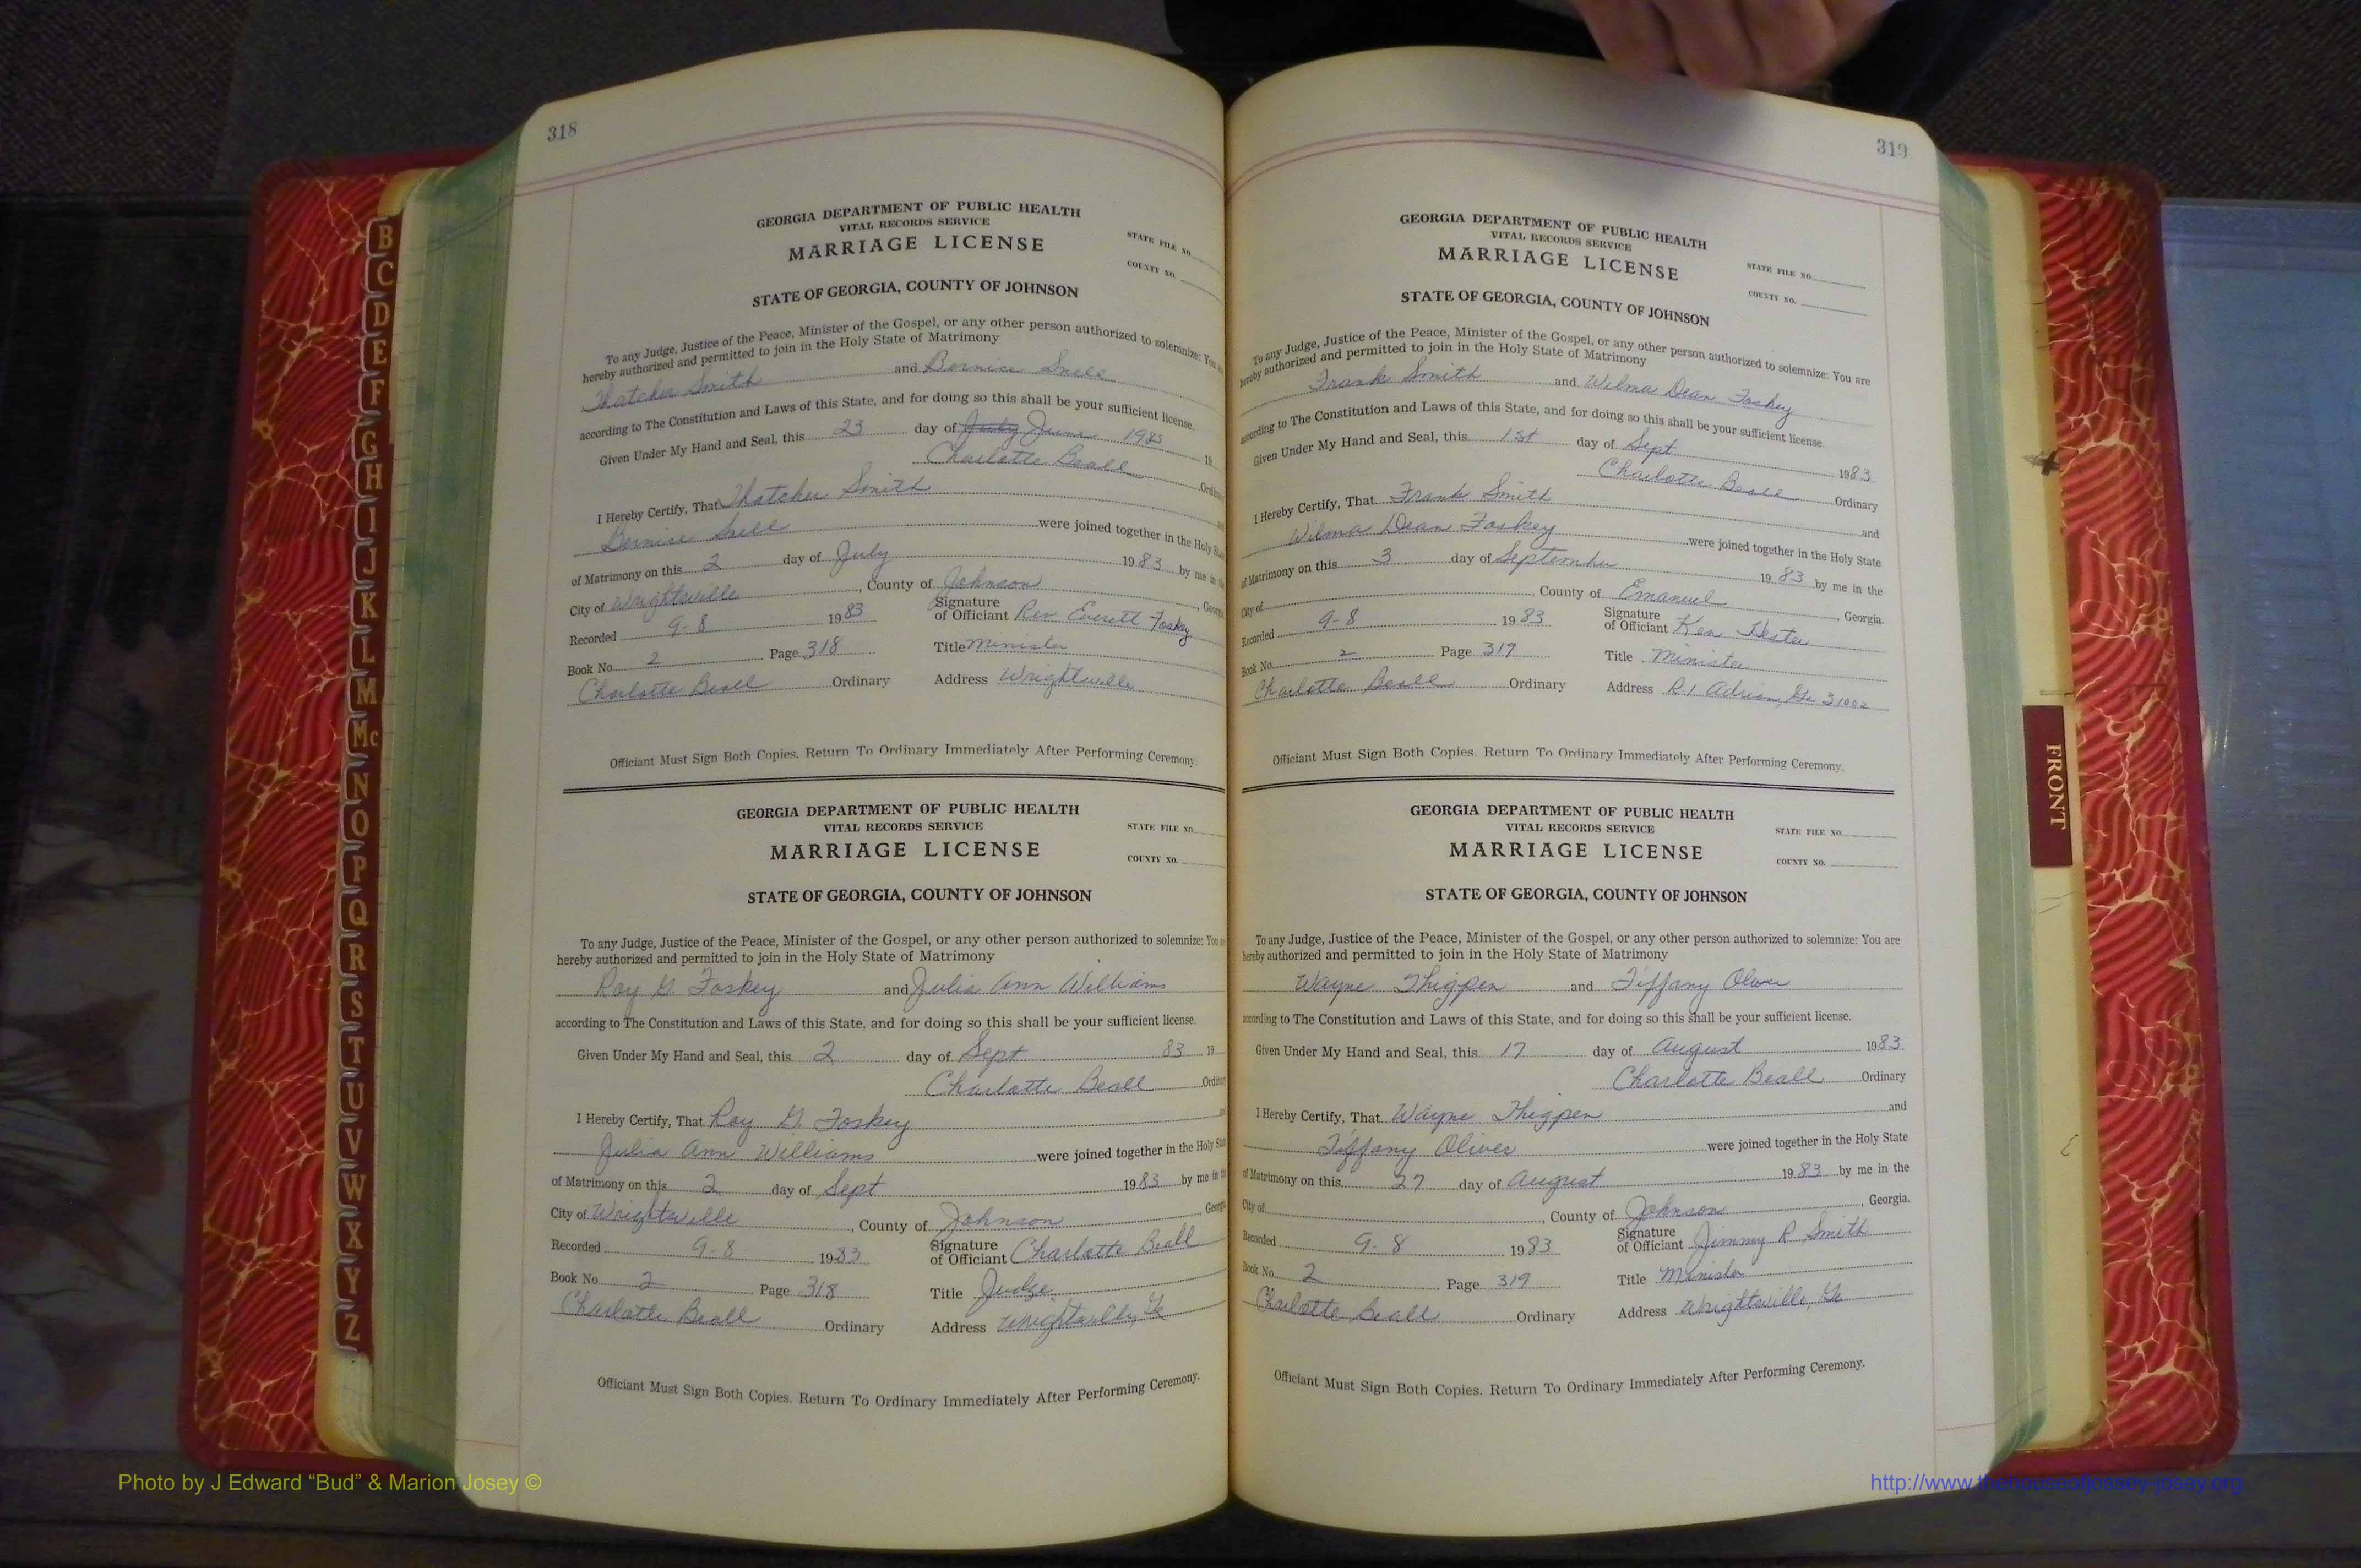 318
GEORGIA DEPARTMENT OF PUBLIC HEALTH
VITAL RECORDS SERVICE
MARRIAGE LICENSE
STATE FILE NO.
COUNTY NO.
STATE OF GEORGIA, COUNTY OF JOHNSON
To any Judge, Justice of the Peace, Minister of the Gospel, or any other person authorized to solemnize: You
hereby authorized and permitted to join in the Holy State of Matrimony
Thatcher Smith and Bernice Snell
according to The Constitution and Laws of this State, and for doing so this shall be your sufficient license.
Given Under My Hand and Seal, this 23 day of July June 1983 19
Charlotte Beall
I Hereby Certify, That Thatcher Smith
Bernice Snell were joined together in the Holy
of Matrimony on this 2 day of July 1983 by me in
City of Wrightsville, County of Johnson
Recorded 9-8 1983 Signature of Officiant Rev Everett Foskey
Book No. 2 Page 318 Title Minister
Charlotte Beall Ordinary Address Wrightsville
Officiant Must Sign Both Copies. Return To Ordinary Immediately After Performing Ceremony.
GEORGIA DEPARTMENT OF PUBLIC HEALTH
VITAL RECORDS SERVICE
MARRIAGE LICENSE
STATE FILE NO.
COUNTY NO.
STATE OF GEORGIA, COUNTY OF JOHNSON
To any Judge, Justice of the Peace, Minister of the Gospel, or any other person authorized to solemnize: You
hereby authorized and permitted to join in the Holy State of Matrimony
Roy G. Foskey and Julia Ann Williams
according to The Constitution and Laws of this State, and for doing so this shall be your sufficient license.
Given Under My Hand and Seal, this 2 day of Sept 83 19
Charlotte Beall
I Hereby Certify, That Roy G. Foskey
Julia Ann Williams were joined together in the Holy
of Matrimony on this 2 day of Sept 1983 by me in
City of Wrightsville, County of Johnson
Recorded 9-8 1983 Signature of Officiant Charlotte Beall
Book No. 2 Page 318 Title Judge
Charlotte Beall Ordinary Address Wrightsville, Ga
Officiant Must Sign Both Copies. Return To Ordinary Immediately After Performing Ceremony.
319
GEORGIA DEPARTMENT OF PUBLIC HEALTH
VITAL RECORDS SERVICE
MARRIAGE LICENSE
STATE FILE NO.
COUNTY NO.
STATE OF GEORGIA, COUNTY OF JOHNSON
To any Judge, Justice of the Peace, Minister of the Gospel, or any other person authorized to solemnize: You are
hereby authorized and permitted to join in the Holy State of Matrimony
Frank Smith and Wilma Dean Foskey
according to The Constitution and Laws of this State, and for doing so this shall be your sufficient license.
Given Under My Hand and Seal, this 1st day of Sept 1983
Charlotte Beall Ordinary
I Hereby Certify, That Frank Smith and
Wilma Dean Foskey were joined together in the Holy State
of Matrimony on this 3 day of September 1983 by me in the
City of, County of Emanuel, Georgia.
Recorded 9-8 1983 Signature of Officiant Ken Hester
Book No. 2 Page 319 Title Minister
Charlotte Beall Ordinary Address R 1 Adrian, Ga 31002
Officiant Must Sign Both Copies. Return To Ordinary Immediately After Performing Ceremony.
GEORGIA DEPARTMENT OF PUBLIC HEALTH
VITAL RECORDS SERVICE
MARRIAGE LICENSE
STATE FILE NO.
COUNTY NO.
STATE OF GEORGIA, COUNTY OF JOHNSON
To any Judge, Justice of the Peace, Minister of the Gospel, or any other person authorized to solemnize: You are
hereby authorized and permitted to join in the Holy State of Matrimony
Wayne Thigpen and Tiffany Oliver
according to The Constitution and Laws of this State, and for doing so this shall be your sufficient license.
Given Under My Hand and Seal, this 17 day of August 1983
Charlotte Beall Ordinary
I Hereby Certify, That Wayne Thigpen and
Tiffany Oliver were joined together in the Holy State
of Matrimony on this 27 day of August 1983 by me in the
City of, County of Johnson, Georgia.
Recorded 9-8 1983 Signature of Officiant Jimmy R Smith
Book No. 2 Page 319 Title Minister
Charlotte Beall Ordinary Address Wrightsville, Ga
Officiant Must Sign Both Copies. Return To Ordinary Immediately After Performing Ceremony.
B
C
D
E
F
G
H
I
J
K
L
M
Mc
N
O
P
Q
R
S
T
U
V
W
X
Y
Z
FRONT
Photo by J Edward “Bud” & Marion Josey ©
http://www.thehouseofjossey-josey.org